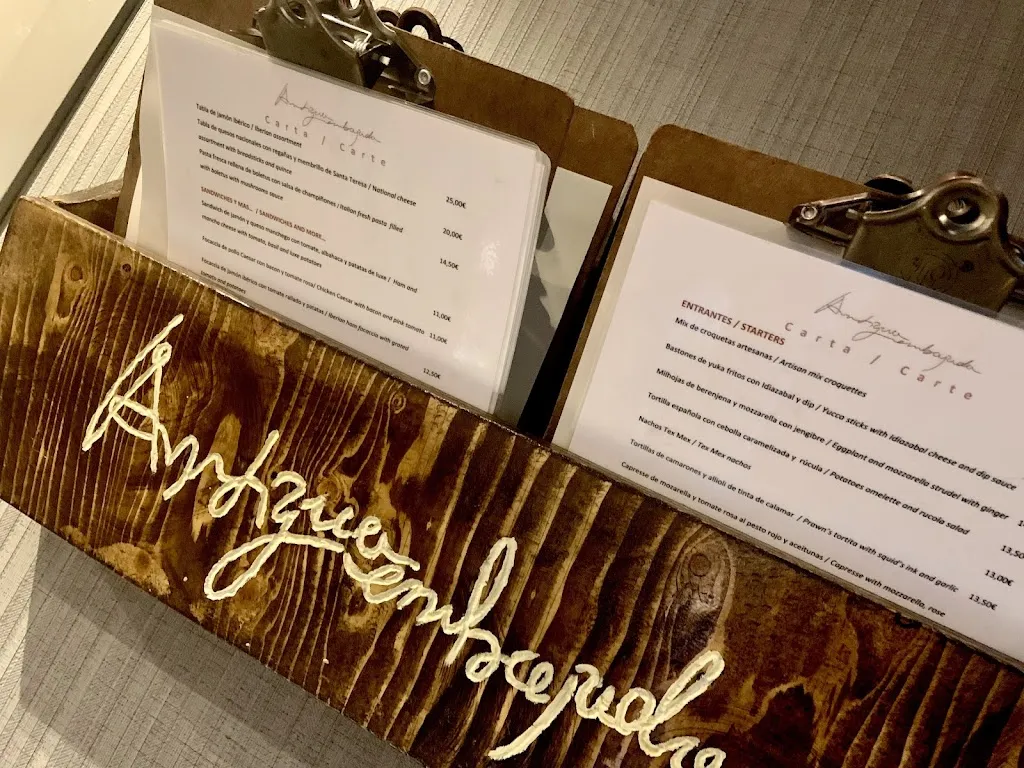 Antiguaembajada
Carta / Carte
Tabla de jamón ibérico / Iberian assortment
25,00€
Tabla de quesos nacionales con regañas y membrillo de Santa Teresa / National cheese
assortment with breedsticks and quince
20,00€
Pasta fresca rellena de boletus con salsa de champiñones / Italian fresh pasta filled
with boletus with mushrooms sauce
14,50€
SANDWICHES Y MAS... / SANDWICHES AND MORE...
Sandwich de jamón y queso manchego con tomate, albahaca y patatas de luxe / Ham and
manche cheese with tomato, basil and luxe potatoes
11,00€
Focaccia de pollo Caesar con bacon y tomate rosa/ Chicken Caesar with bacon and pink tomato
11,00€
Focaccia de jamón ibérico con tomate rallado y patatas / Iberian ham focaccia with grated
tomato and potatoes
12,50€
Antiguaembajada
Carta / Carte
ENTRANTES / STARTERS
Mix de croquetas artesanas / Artisan mix croquettes
Bastones de yuka fritos con Idiazabal y dip / Yucca sticks with Idiazabel cheese and dip sauce
Milhojas de berenjena y mozzarella con jengibre / Eggplant and mozzarella strudel with ginger
Tortilla española con cebolla caramelizada y rúcula / Potatoes omelette and rucola salad
13,50
Nachos Tex Mex / Tex Mex nachos
13,00€
Tortillas de camarones y allioli de tinta de calamar / Prawn's tortita with squid's ink and garlic
13,50€
Capresse de mozarella y tomate rosa al pesto rojo y aceitunas / Capresse with mozzarella, rose
Antiguaembajada